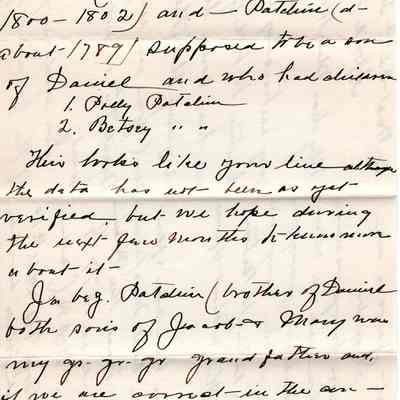 1800-1802) and - Patchin (d-
about-1789) supposed to be a son
of Daniel and who had children
1. Polly Patchin
2. Betsey " "
This looks like your line although
the data has not been as yet
verified, but we hope during
the next few months to know more
about it-
Patchin (brother of Daniel
both sons of Jacob & Mary was
my gr-gr-gr grandfather and,
if we are correct-in the an-